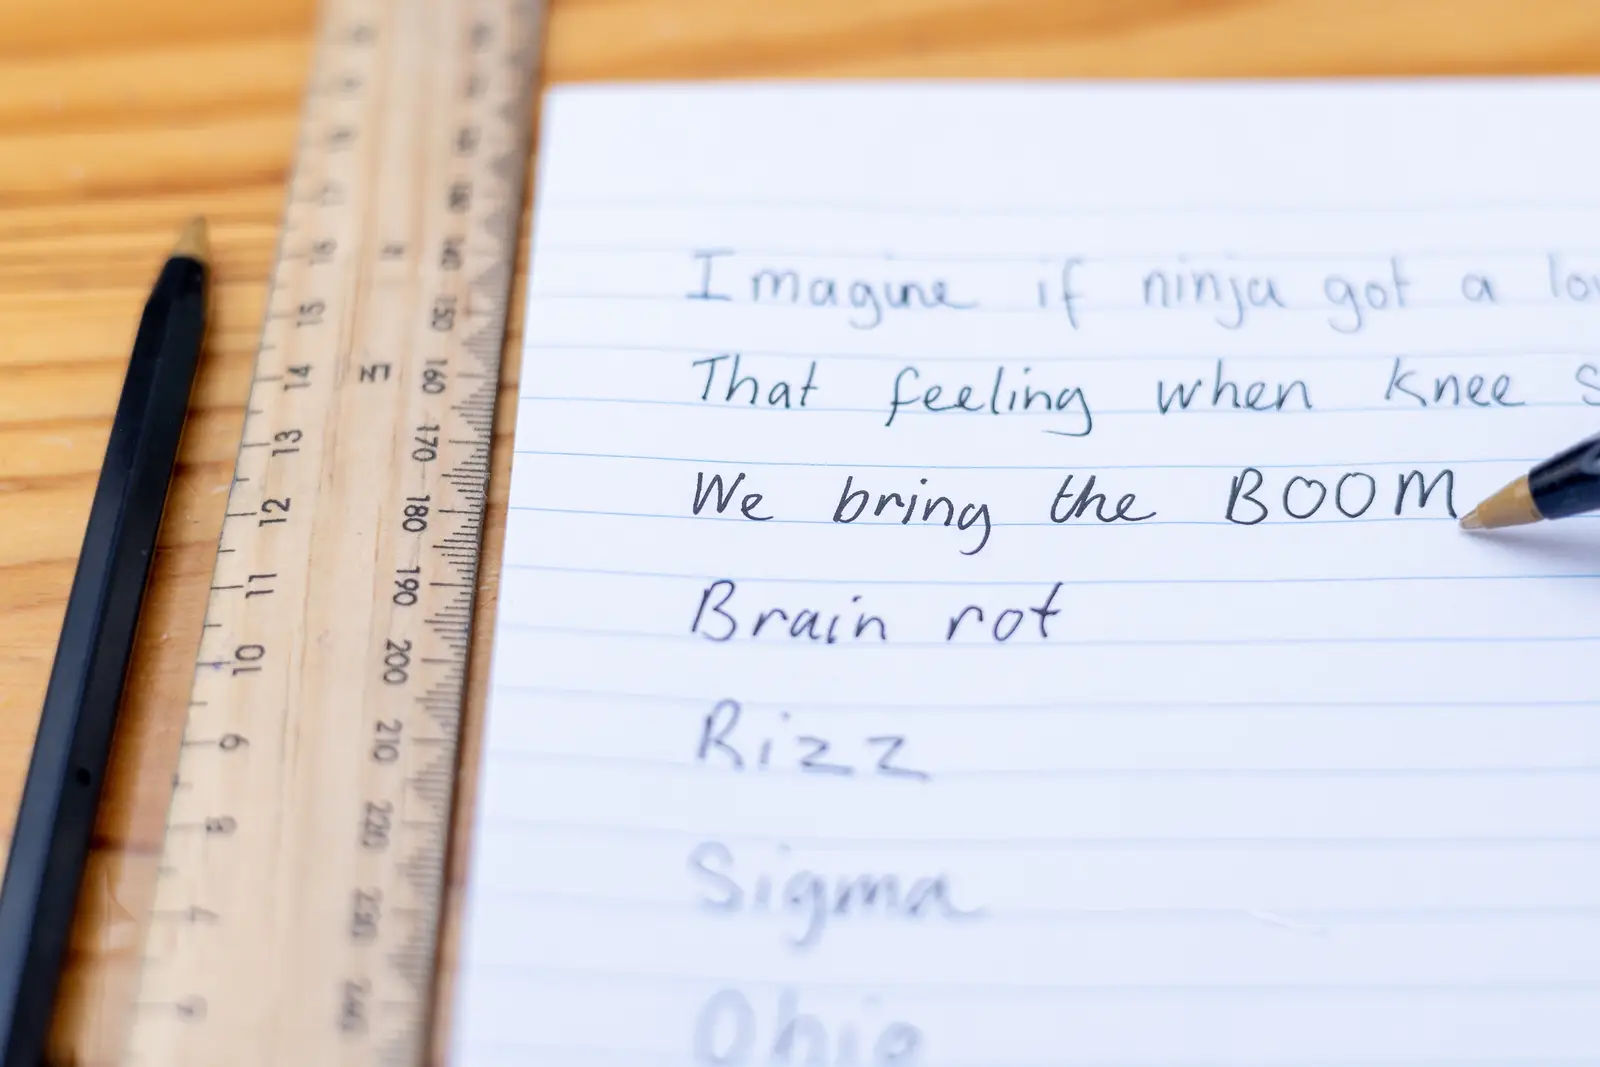 Imagine if ninja got a lo
That feeling when knee s
We bring the BOOM
Brain rot
Rizz
Sigma
Ohio
M
16
15
14
13
12
11
10
9
8
7
6
150
160
170
180
190
200
210
220
230
240